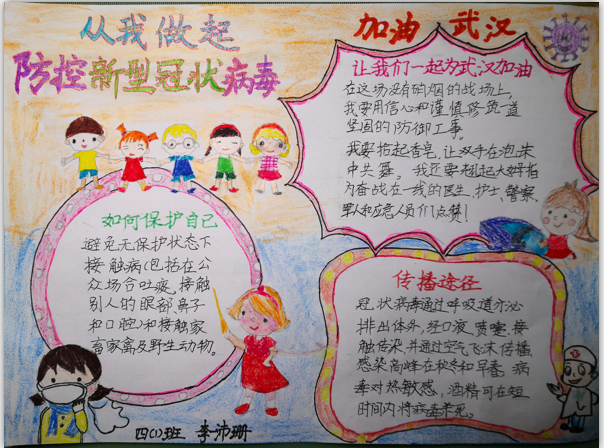 从我做起
防控新型冠状病毒
加油 武汉
让我们一起为武汉加油
在这场没有硝烟的战场上,
我要用信心和谨慎修筑一道
坚固的防御工事。
我要拾起香皂,让双手在泡沫
中共舞,我还要翘起大拇指
为奋战在一线的医生、护士、警察、
军人和应急人员们点赞!
如何保护自己
避免无保护状态下
接触病(包括在公
众场合吐痰,接触
别人的眼部、鼻子
和口腔)和接触家
畜家禽及野生动物。
传播途径
冠状病毒通过呼吸道分泌
排出体外,经口液、喷嚏、接
触传染,并通过空气飞沫传播
感染高峰在秋冬和早春。病
毒对热敏感,酒精可在短
时间内将病毒杀死。
四(1)班 李沛珊